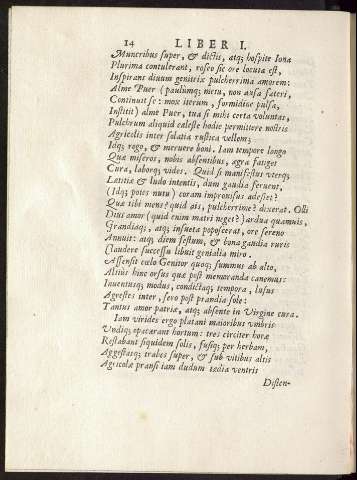 14 LIBER I.
Muneribus super, & dictis, atq; hospite Iona
Plurima contulerant, roseo sic ore locuta est,
Inspirans diuum genitrix pulcherrima amorem:
Alme Puer (paulumq; metu, non ausa fateri,
Continuit se: mox iterum, formidine pulsa,
Institit) alme Puer, tua si mihi certa voluntas,
Pulchrum aliquid cæleste hodie permittere nostris
Agricolis inter solatia rustica vellem;
Idq; rogo, & meruere boni. Iam tempore longo
Quæ miseros, nobis absentibus, agra fatiget
Cura, laborq; vides. Quid si manifestus vterq;
Lætitiæ & ludo intentis, dum gaudia feruent,
(Idq; potes nutu) coram improuisus adesset?
Quæ tibi mens? quid ais, pulcherrime? dixerat. Olli
Ditus amor (quid enim matri neget?) ardua quamuis,
Grandiaq;, atq; insueta poposcerat, ore sereno
Annuit: atq; diem festum, & bona gaudia ruris
Claudere successu libuit genialia miro.
Assensit cælo Genitor quoq; summus ab alto,
Altius hinc orsus quæ post memoranda canemus:
Inuentusq; modus, condictaq; tempora, lusus
Agrestes inter, sero post prandia sole:
Tantus amor patriæ, atq; absente in Virgine cura.
Iam virides ergo platani maioribus vmbris
Vndiq; opacarant hortum: tres circiter horæ
Restabant siquidem solis, fusiq; per herbam,
Aggestasq; trabes super, & sub vitibus altis
Agricolæ pransi iam dudum tædia ventris
Disten-